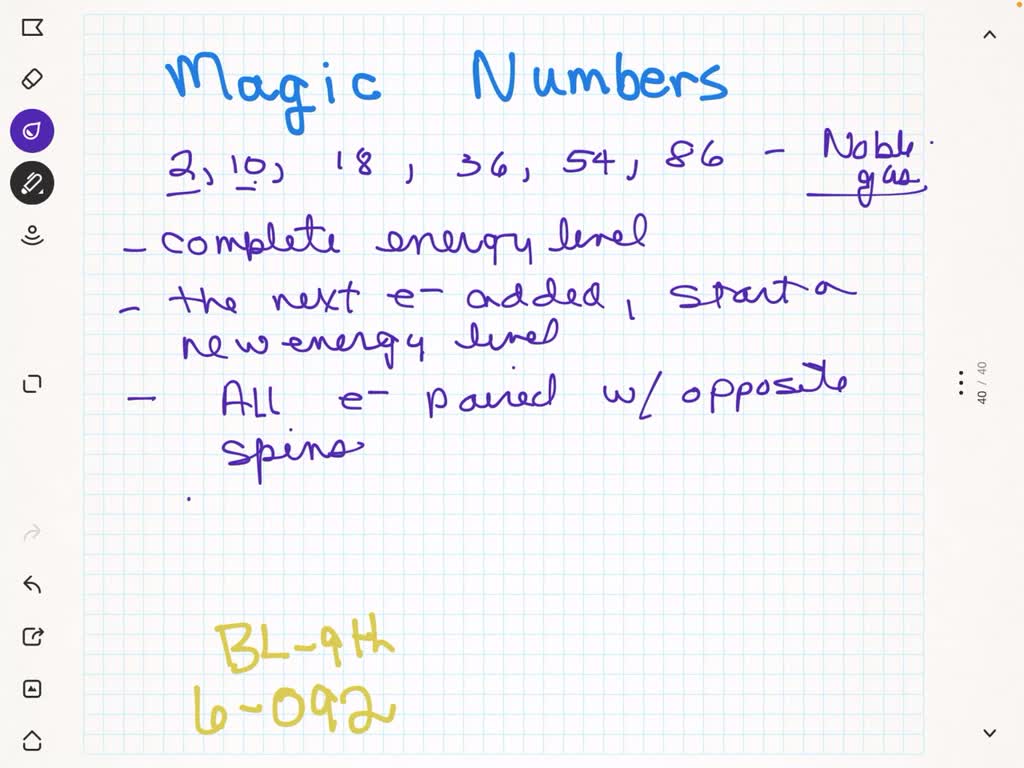 Magic Numbers
2, 10, 18, 36, 54, 86 - Noble gas
- complete energy level
- the next e- added, start a
new energy level
- All e- paired w/ opposite
spins
40 / 40
BL-9th
6-092